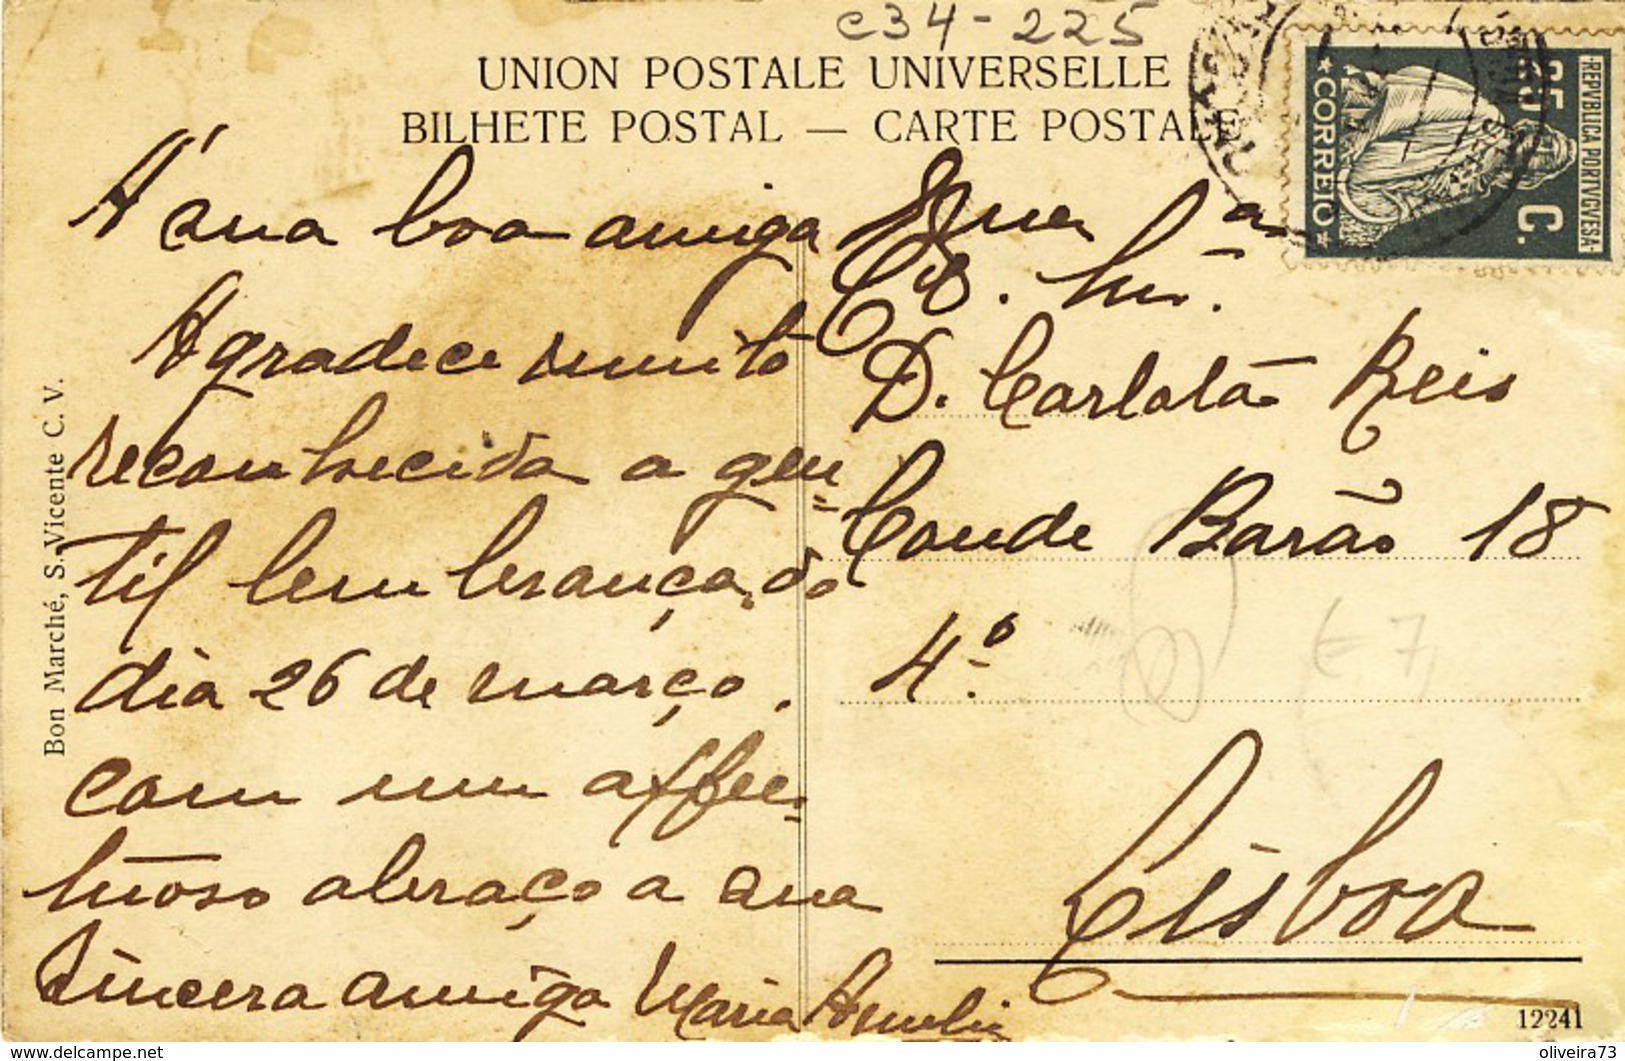 c34-225
UNION POSTALE UNIVERSELLE
BILHETE POSTAL — CARTE POSTALE
REPVBLICA PORTVGVESA
25 C.
CORREIO
Bon Marché, S. Vicente C. V.
A' sua boa amiga
Agradece muito
reconhecida a gen=
til lembrança do
dia 26 de março,
com um affec=
tuoso abraço a sua
sincera amiga Maria Amelia
Exma
D. Carlota Reis
Conde Barão 18
4.º
Lisboa
12241
oliveira73
delcampe.net